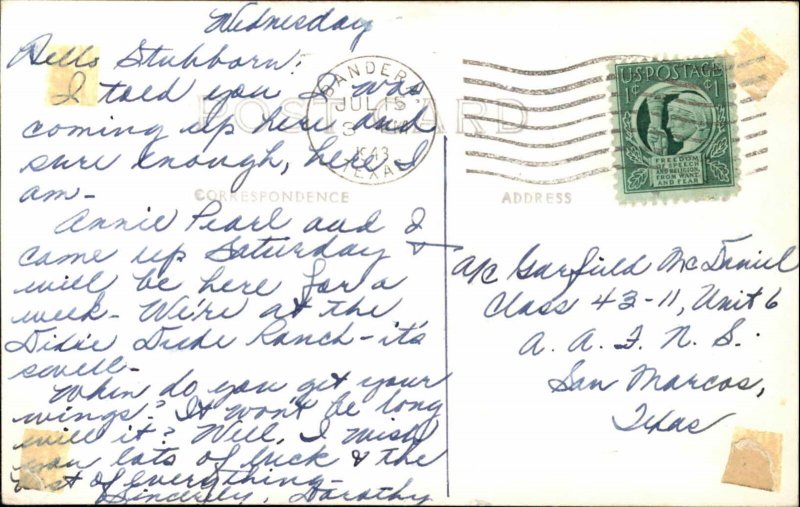 Wednesday
Hello Stubborn:
I told you I was
coming up here and
sure enough, here I
am-
Annie Pearl and I
came up Saturday &
will be here for a
week - We're at the
Dixie Dude Ranch - it's
swell-
When do you get your
wings? It won't be long
will it? Well, I wish
you lots of luck & the
best of everything-
Sincerely, Dorothy
POST CARD
CORRESPONDENCE
ADDRESS
BANDERA
JUL 15
1943
TEXAS
U.S. POSTAGE
1¢ ¢1
FREEDOM
OF SPEECH
AND RELIGION,
FROM WANT
AND FEAR
A/C Garfield McDaniel
Class 43-11, Unit 6
A. A. F. N. S.
San Marcos,
Texas